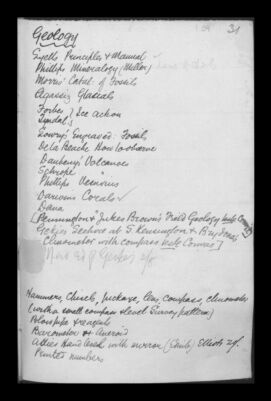 31
Geology
Lyell's Principles & Manual ✓
Phillips Mineralogy (Miller)
Morris' Catal. of Fossils
Agassiz Glacials
Forbes } See action
Tyndal
Lowry's Engraved Fossils
De la Beche How to observe
Daubeny's Volcanoes
Scrope "
Phillips Vesuvius
Darwins Corals ✓
Dana
[Pennington & Jukes Brown's Field Geology
Geikies Section at S. Kensington & Brydens
Clinometer with compass vide Conws]
Hammers, chisels, pickaxe, lens, compass, clinometer
(with a small compass & level Survey pattern)
Blowpipe & reagents
Barometer or Aneroid
Abbies Hand level with mirror (Elliots)
Printed numbers